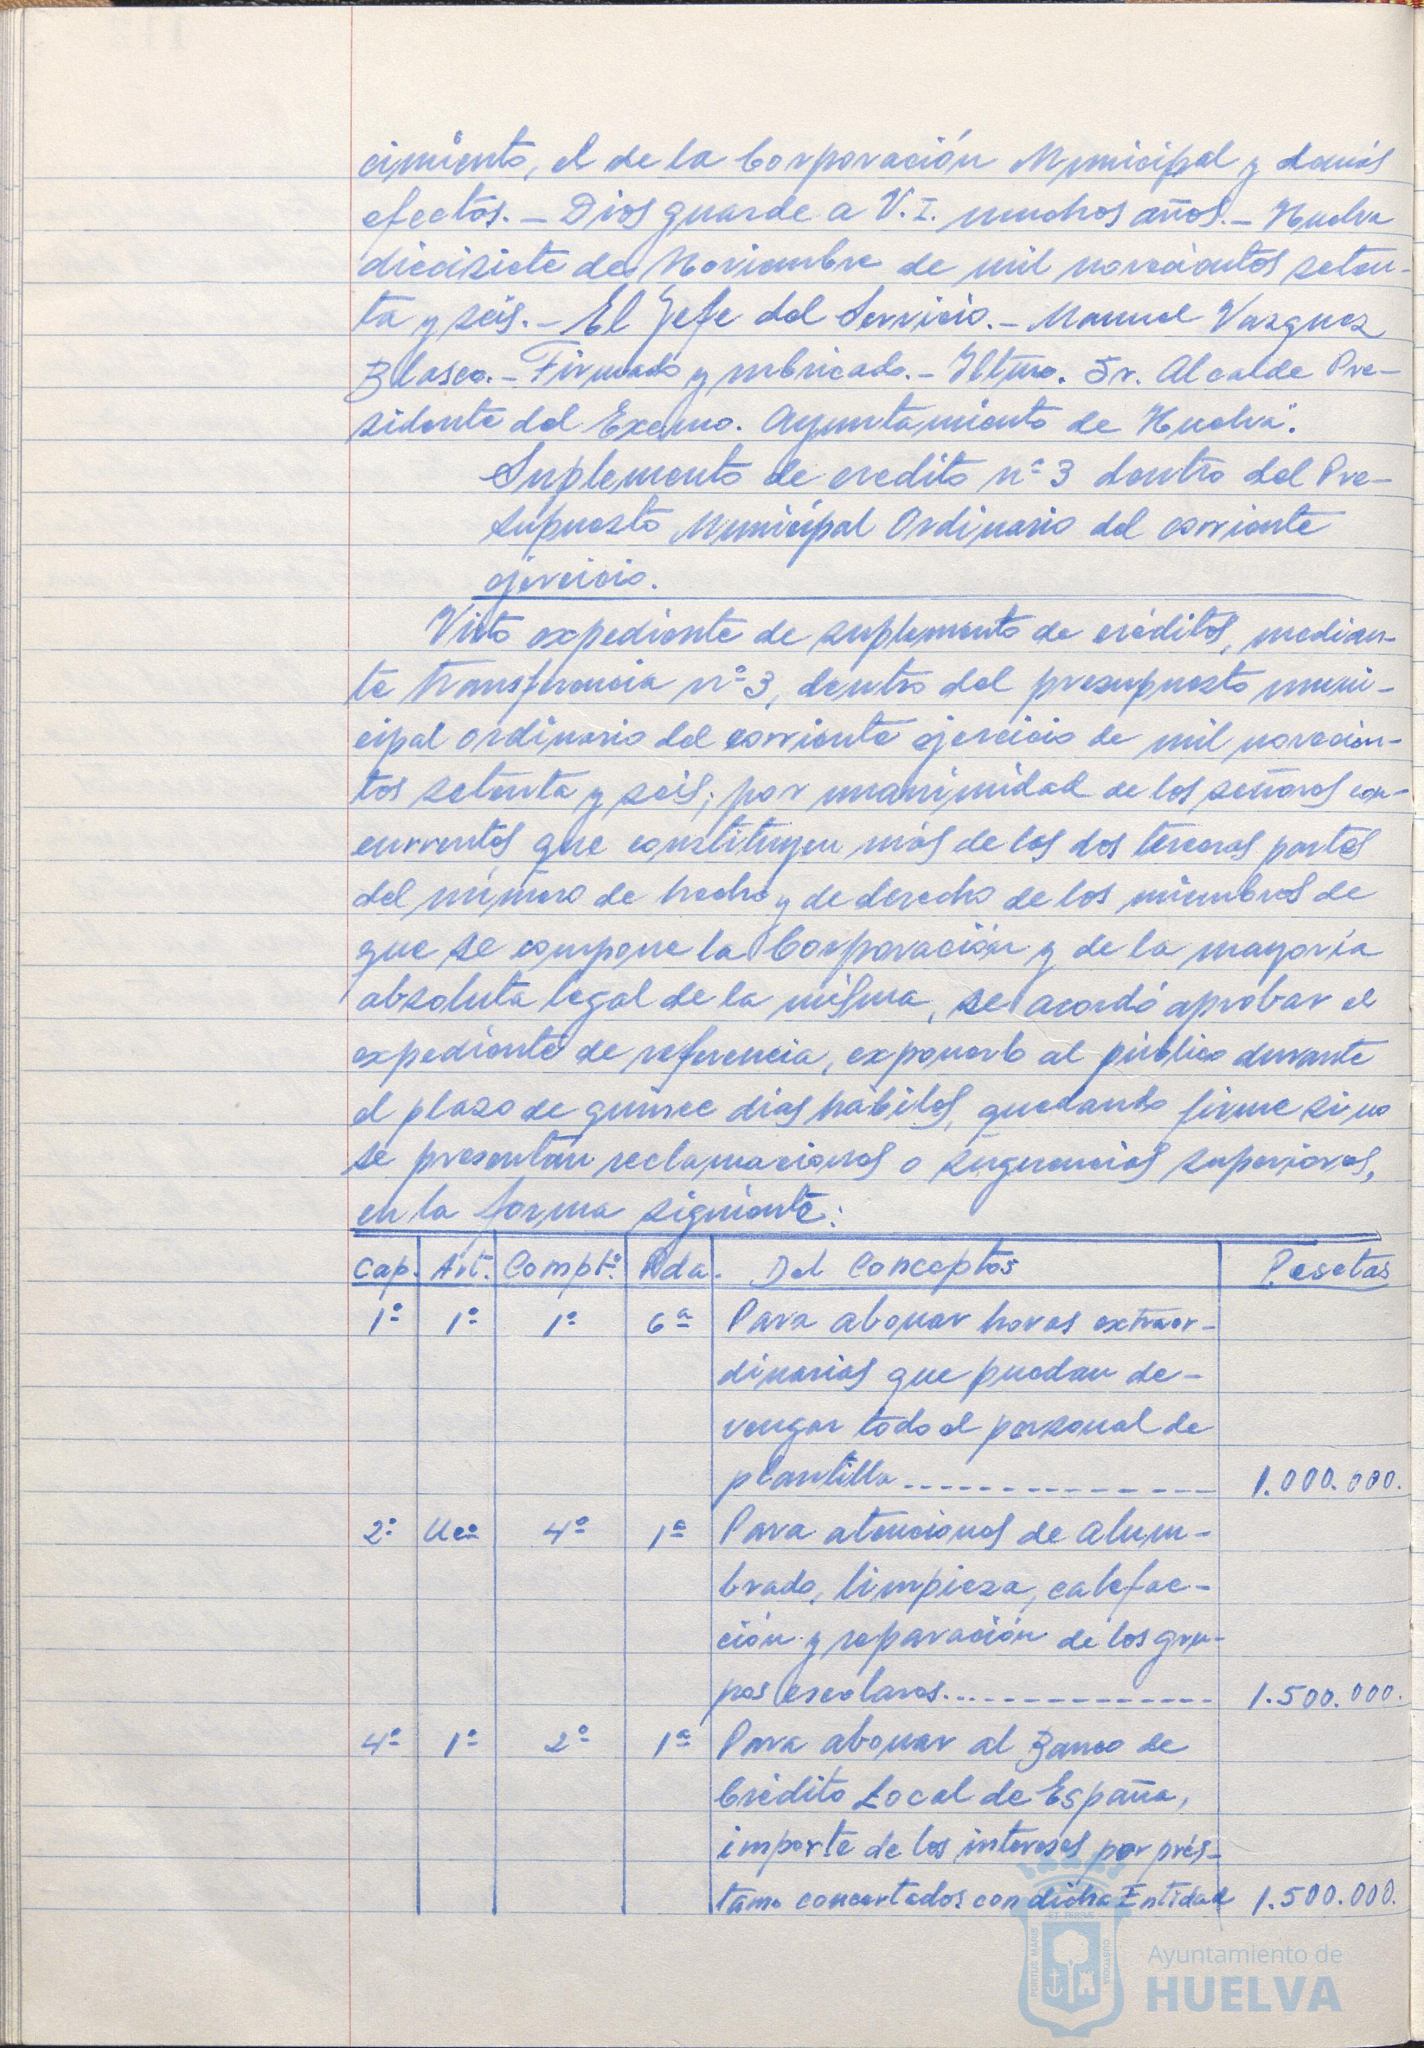 cimiento, el de la Corporación Municipal y demás
efectos.- Dios guarde a V.I. muchos años.- Huelva
diecisiete de Noviembre de mil novecientos seten-
ta y seis.- El Jefe del Servicio.- Manuel Vazquez
Blasco.- Firmado y rubricado.- Iltmo. Sr. Alcalde Pre-
sidente del Excmo. Ayuntamiento de Huelva".
Suplemento de credito nº 3 dentro del Pre-
supuesto Municipal Ordinario del corriente
ejercicio.
Visto expediente de suplemento de créditos, median-
te transferencia nº 3, dentro del presupuesto muni-
cipal ordinario del corriente ejercicio de mil novecien-
tos setenta y seis; por unanimidad de los señores con-
currentes que constituyen más de las dos terceras partes
del número de hecho y de derecho de los miembros de
que se compone la Corporación y de la mayoría
absoluta legal de la misma, se acordó aprobar el
expediente de referencia, exponerlo al público durante
el plazo de quince dias hábiles, quedando firme si no
se presentan reclamaciones o sugerencias superiores,
en la forma siguiente:
Cap. Art. Compto. Pda. Del Conceptos Pesetas
1º 1º 1º 6ª Para abonar horas extraor-
dinarias que puedan de-
vengar todo el personal de
plantilla 1.000.000.
2º Uco 4º 1ª Para atenciones de alum-
brado, limpieza, calefac-
ción y reparación de los gru-
pos escolares 1.500.000.
4º 1º 2º 1ª Para abonar al Banco de
Crédito Local de España,
importe de los intereses por prés-
tamo concertados con dicha Entidad 1.500.000.
Ayuntamiento de
HUELVA